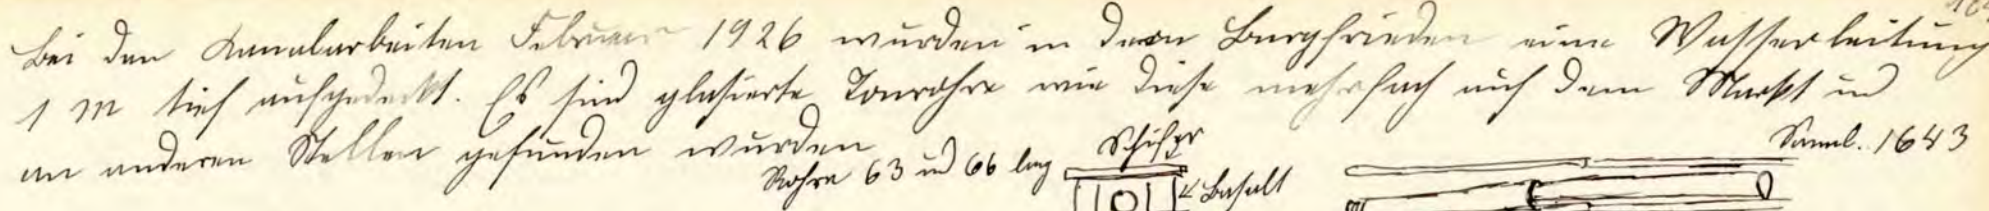 Bei den Kanalarbeiten Februar 1926 wurden in dem Burgfrieden eine Wasserleitung
1 m tief aufgedeckt. Es sind glasierte Tonrohre wie diese mehrfach auf dem Markt und
an anderen Stellen gefunden wurden
Rohre 63 und 66 lang
Schiefer
Basalt
Samml. 1643